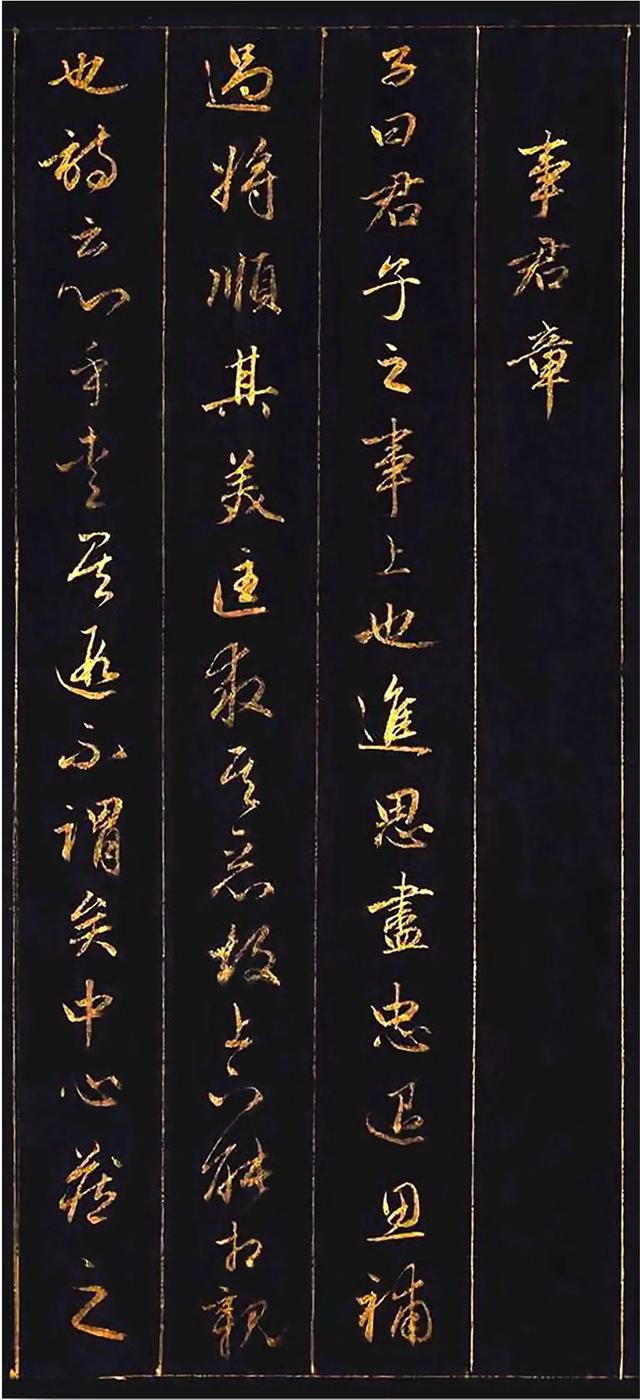 事君章
子曰君子之事上也進思盡忠退思補
過將順其美匡救其惡故上下能相親
也詩云心乎愛矣遐不謂矣中心藏之